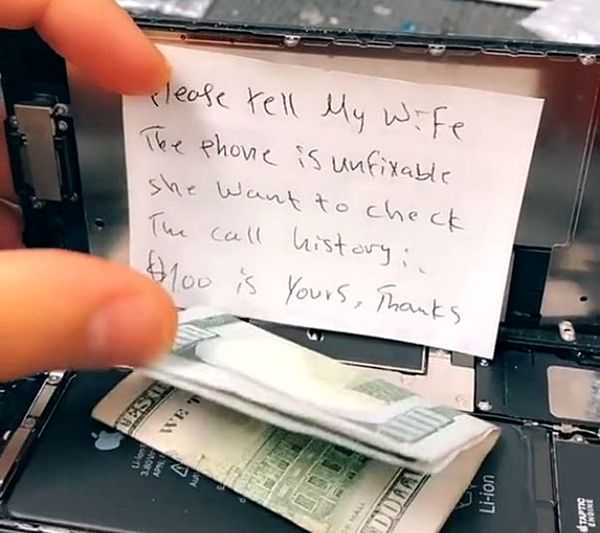 Please tell My Wife
The phone is unfixable
she want to check
The call history:.
$100 is Yours, Thanks
WE T
Li-ion
Li-ion
TAPTIC
ENGINE